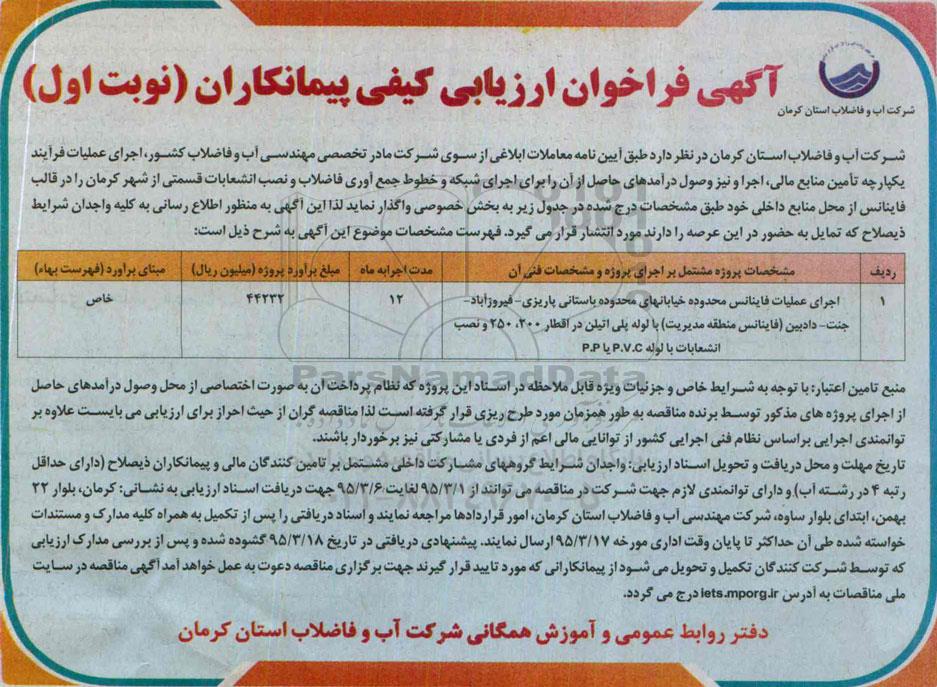 آگهی فراخوان ارزیابی کیفی پیمانکاران (نوبت اول)
شرکت آب و فاضلاب استان کرمان
شرکت آب و فاضلاب استان کرمان در نظر دارد طبق آیین نامه معاملات ابلاغی از سوی شرکت مادر تخصصی مهندسی آب و فاضلاب کشور، اجرای عملیات فرآیند
یکپارچه تأمین منابع مالی، اجرا و نیز وصول درآمدهای حاصل از آن را برای اجرای شبکه و خطوط جمع آوری فاضلاب و نصب انشعابات قسمتی از شهر کرمان را در قالب
فاینانس از محل منابع داخلی خود طبق مشخصات درج شده در جدول زیر به بخش خصوصی واگذار نماید لذا این آگهی به منظور اطلاع رسانی به کلیه واجدان شرایط
ذیصلاح که تمایل به حضور در این عرصه را دارند مورد انتشار قرار می گیرد. فهرست مشخصات موضوع این آگهی به شرح ذیل است:
ردیف مشخصات پروژه مشتمل بر اجرای پروژه و مشخصات فنی آن مدت اجرا به ماه مبلغ برآورد پروژه (میلیون ریال) مبنای برآورد (فهرست بهاء)
۱ اجرای عملیات فاینانس محدوده خیابانهای محدوده باستانی پاریزی- فیروزآباد- ۱۲ ۴۴۲۳۲ خاص
جنت- دادبین (فاینانس منطقه مدیریت) با لوله پلی اتیلن در اقطار ۲۰۰، ۲۵۰ و نصب
انشعابات با لوله P.V.C یا P.P
منبع تامین اعتبار: با توجه به شرایط خاص و جزئیات ویژه قابل ملاحظه در اسناد این پروژه که نظام پرداخت آن به صورت اختصاصی از محل وصول درآمدهای حاصل
از اجرای پروژه های مذکور توسط برنده مناقصه به طور همزمان مورد طرح ریزی قرار گرفته است لذا مناقصه گران از حیث احراز برای ارزیابی می بایست علاوه بر
توانمندی اجرایی براساس نظام فنی اجرایی کشور از توانایی مالی اعم از فردی یا مشارکتی نیز برخوردار باشند.
تاریخ مهلت و محل دریافت و تحویل اسناد ارزیابی: واجدان شرایط گروههای مشارکت داخلی مشتمل بر تامین کنندگان مالی و پیمانکاران ذیصلاح (دارای حداقل
رتبه ۴ در رشته آب) و دارای توانمندی لازم جهت شرکت در مناقصه می توانند از ۹۵/۳/۱ لغایت ۹۵/۳/۶ جهت دریافت اسناد ارزیابی به نشانی: کرمان، بلوار ۲۲
بهمن، ابتدای بلوار ساوه، شرکت مهندسی آب و فاضلاب استان کرمان، امور قراردادها مراجعه نمایند و اسناد دریافتی را پس از تکمیل به همراه کلیه مدارک و مستندات
خواسته شده طی آن حداکثر تا پایان وقت اداری مورخه ۹۵/۳/۱۷ ارسال نمایند. پیشنهادی دریافتی در تاریخ ۹۵/۳/۱۸ گشوده شده و پس از بررسی مدارک ارزیابی
که توسط شرکت کنندگان تکمیل و تحویل می شود از پیمانکارانی که مورد تایید قرار گیرند جهت برگزاری مناقصه دعوت به عمل خواهد آمد آگهی مناقصه در سایت
ملی مناقصات به آدرس iets.mporg.ir درج می گردد.
دفتر روابط عمومی و آموزش همگانی شرکت آب و فاضلاب استان کرمان
ParsNamadData